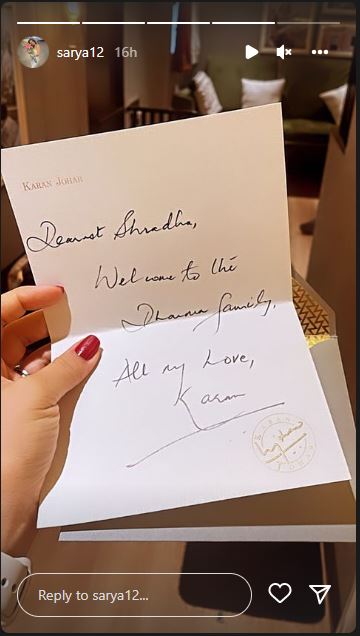 sarya12 16h
KARAN JOHAR
Dearest Shradha,
Welcome to the
Dharma family.
All my Love,
Karan
Reply to sarya12...